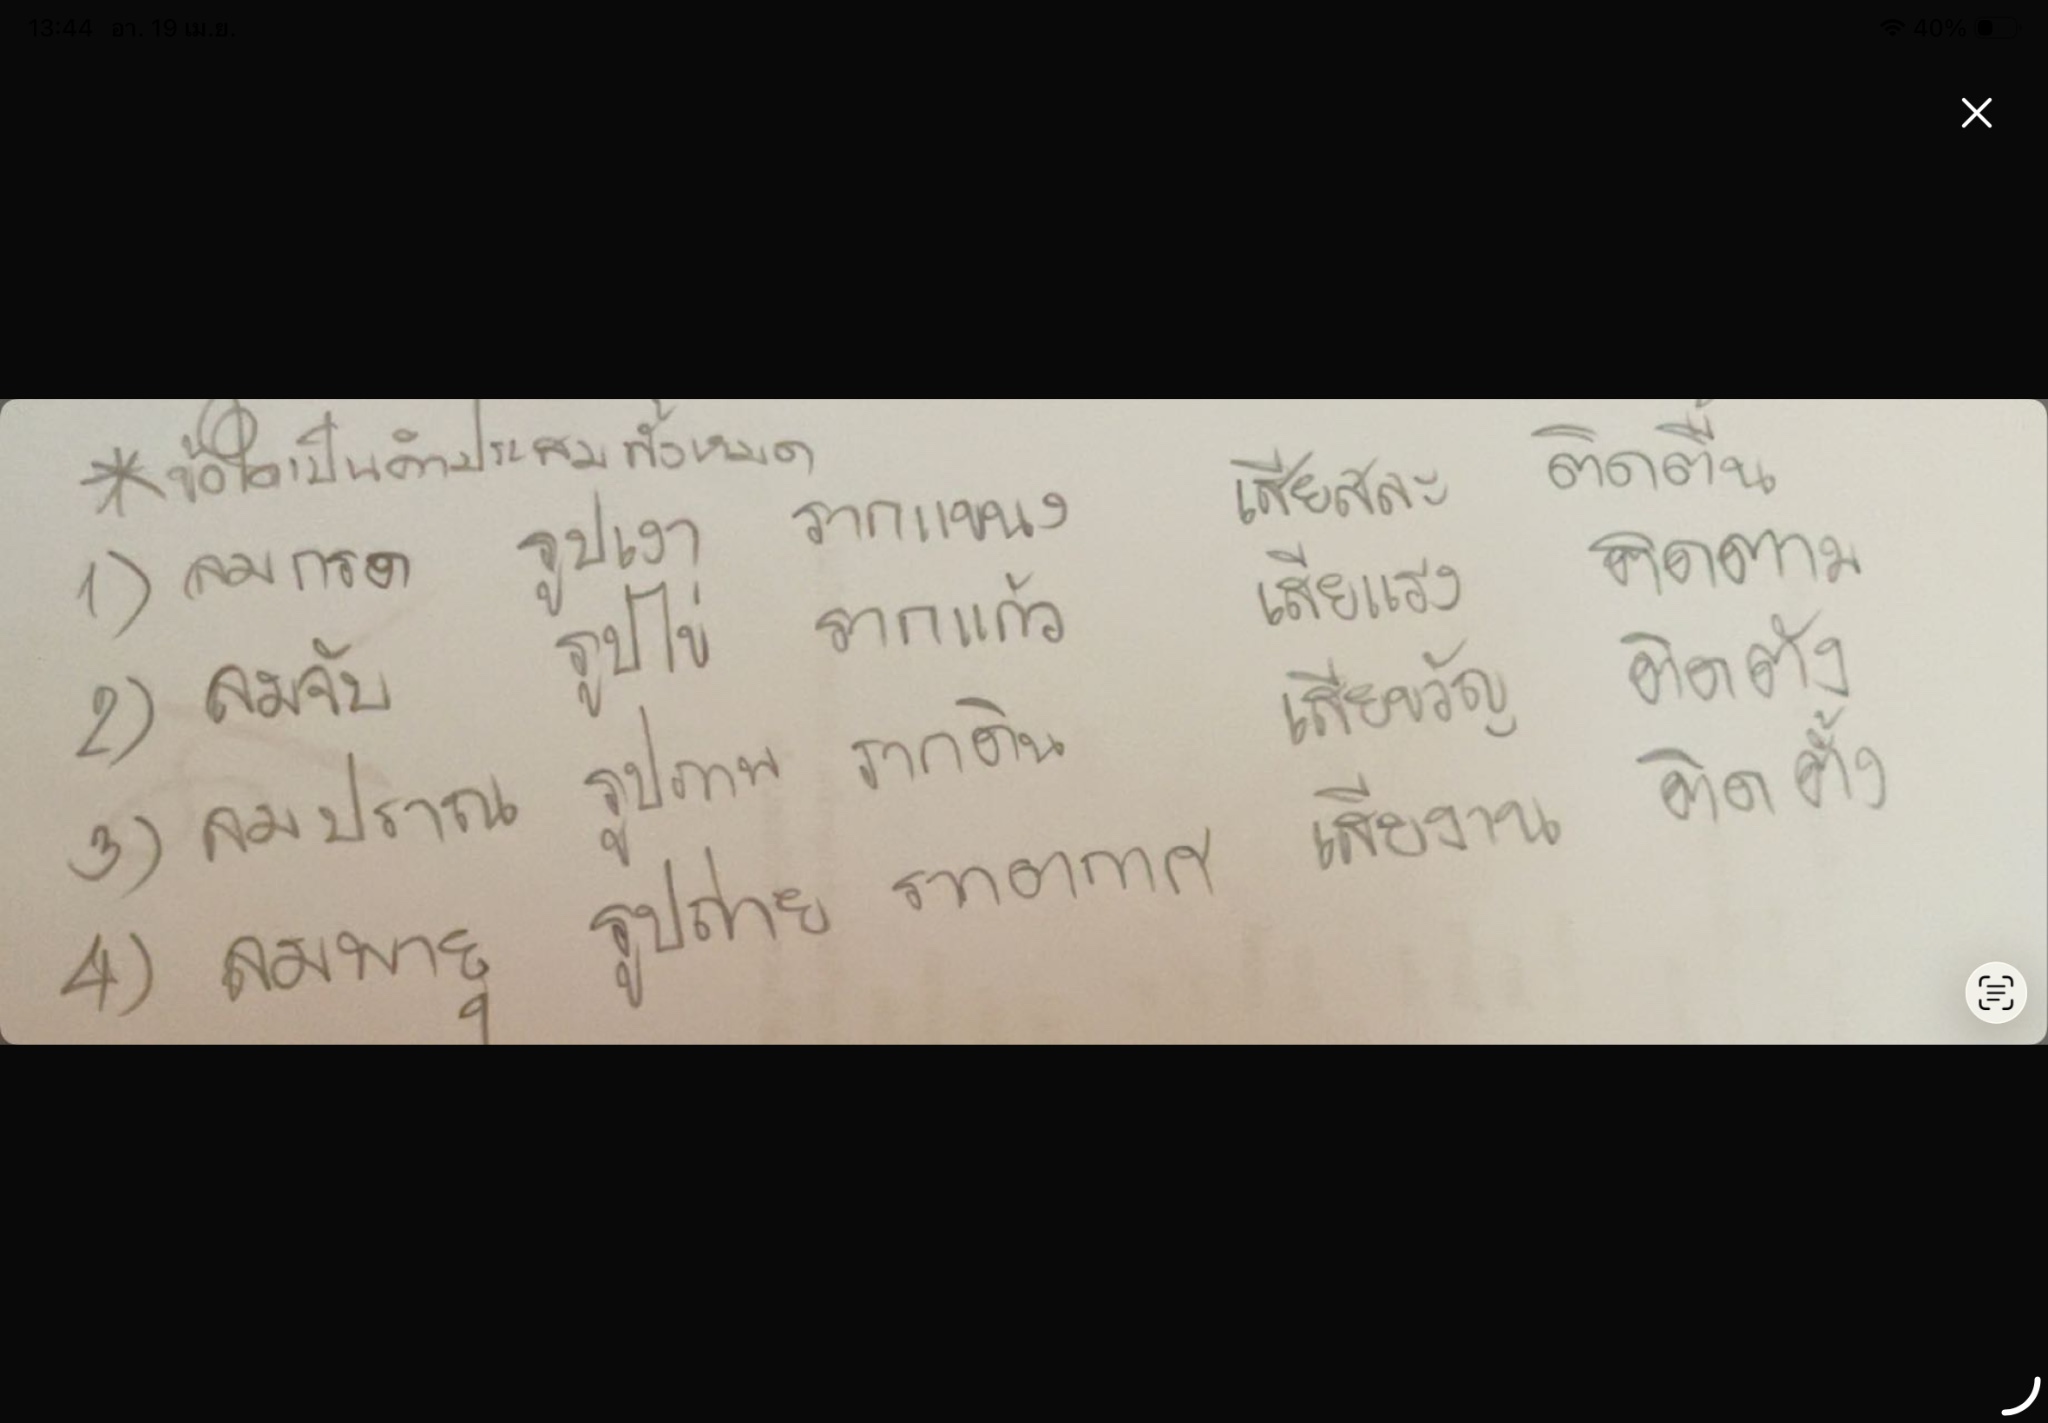 13:44 อา. 19 เม.ย. 40%
* ข้อใดเป็นคำประสมทั้งหมด
1) ลมกรด รูปเงา รากแขนง เสียสละ ติดตื้น
2) ลมจับ รูปไข่ รากแก้ว เสียแรง ติดตาม
3) ลมปราณ รูปภาพ รากดิน เสียขวัญ ติดตัง
4) ลมพายุ รูปถ่าย รากอากาศ เสียงาน ติดตั้ง